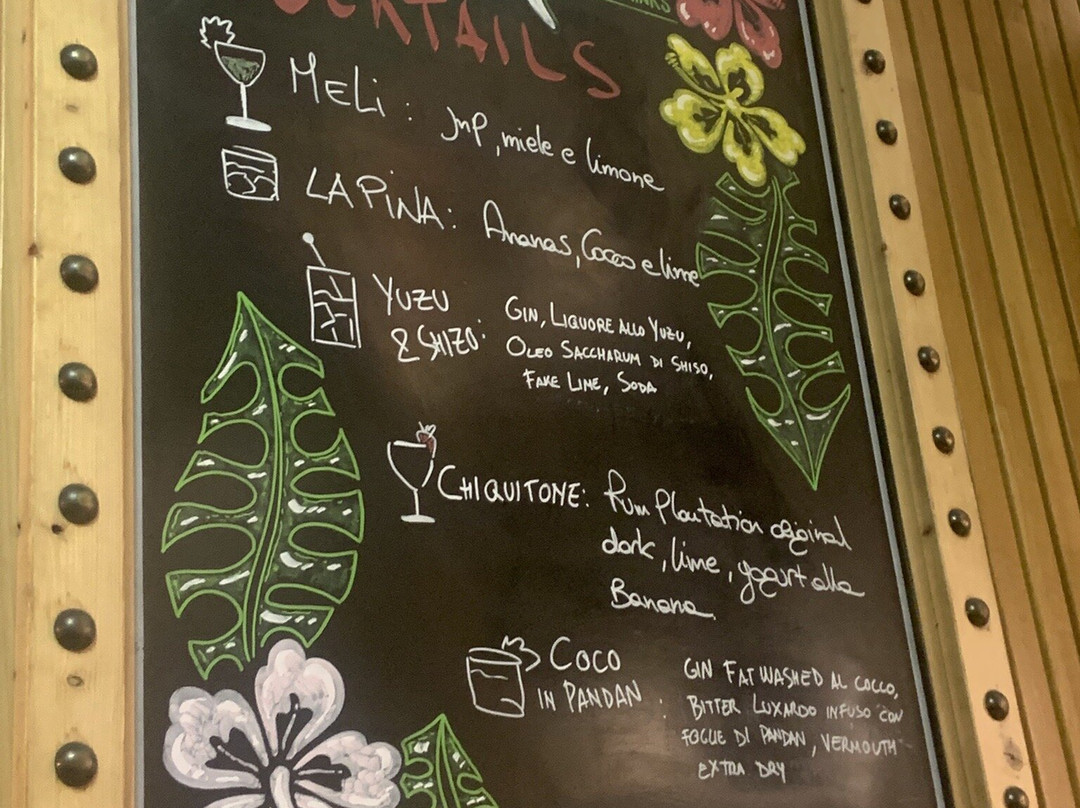 COCKTAILS
MELI : JNP, miele e limone
LA PINA: Ananas, Cocco e lime
YUZU
& SHIZO: GIN, LIQUORE ALLO YUZU,
OLEO SACCHARUM DI SHISO,
FAKE LIME, SODA
CHIQUITONE: Rum Plantation original
dark, lime, yogurt alla
Banana
COCO
IN PANDAN : GIN FAT WASHED AL COCCO,
BITTER LUXARDO INFUSO CON
FOGLIE DI PANDAN, VERMOUTH
EXTRA DRY